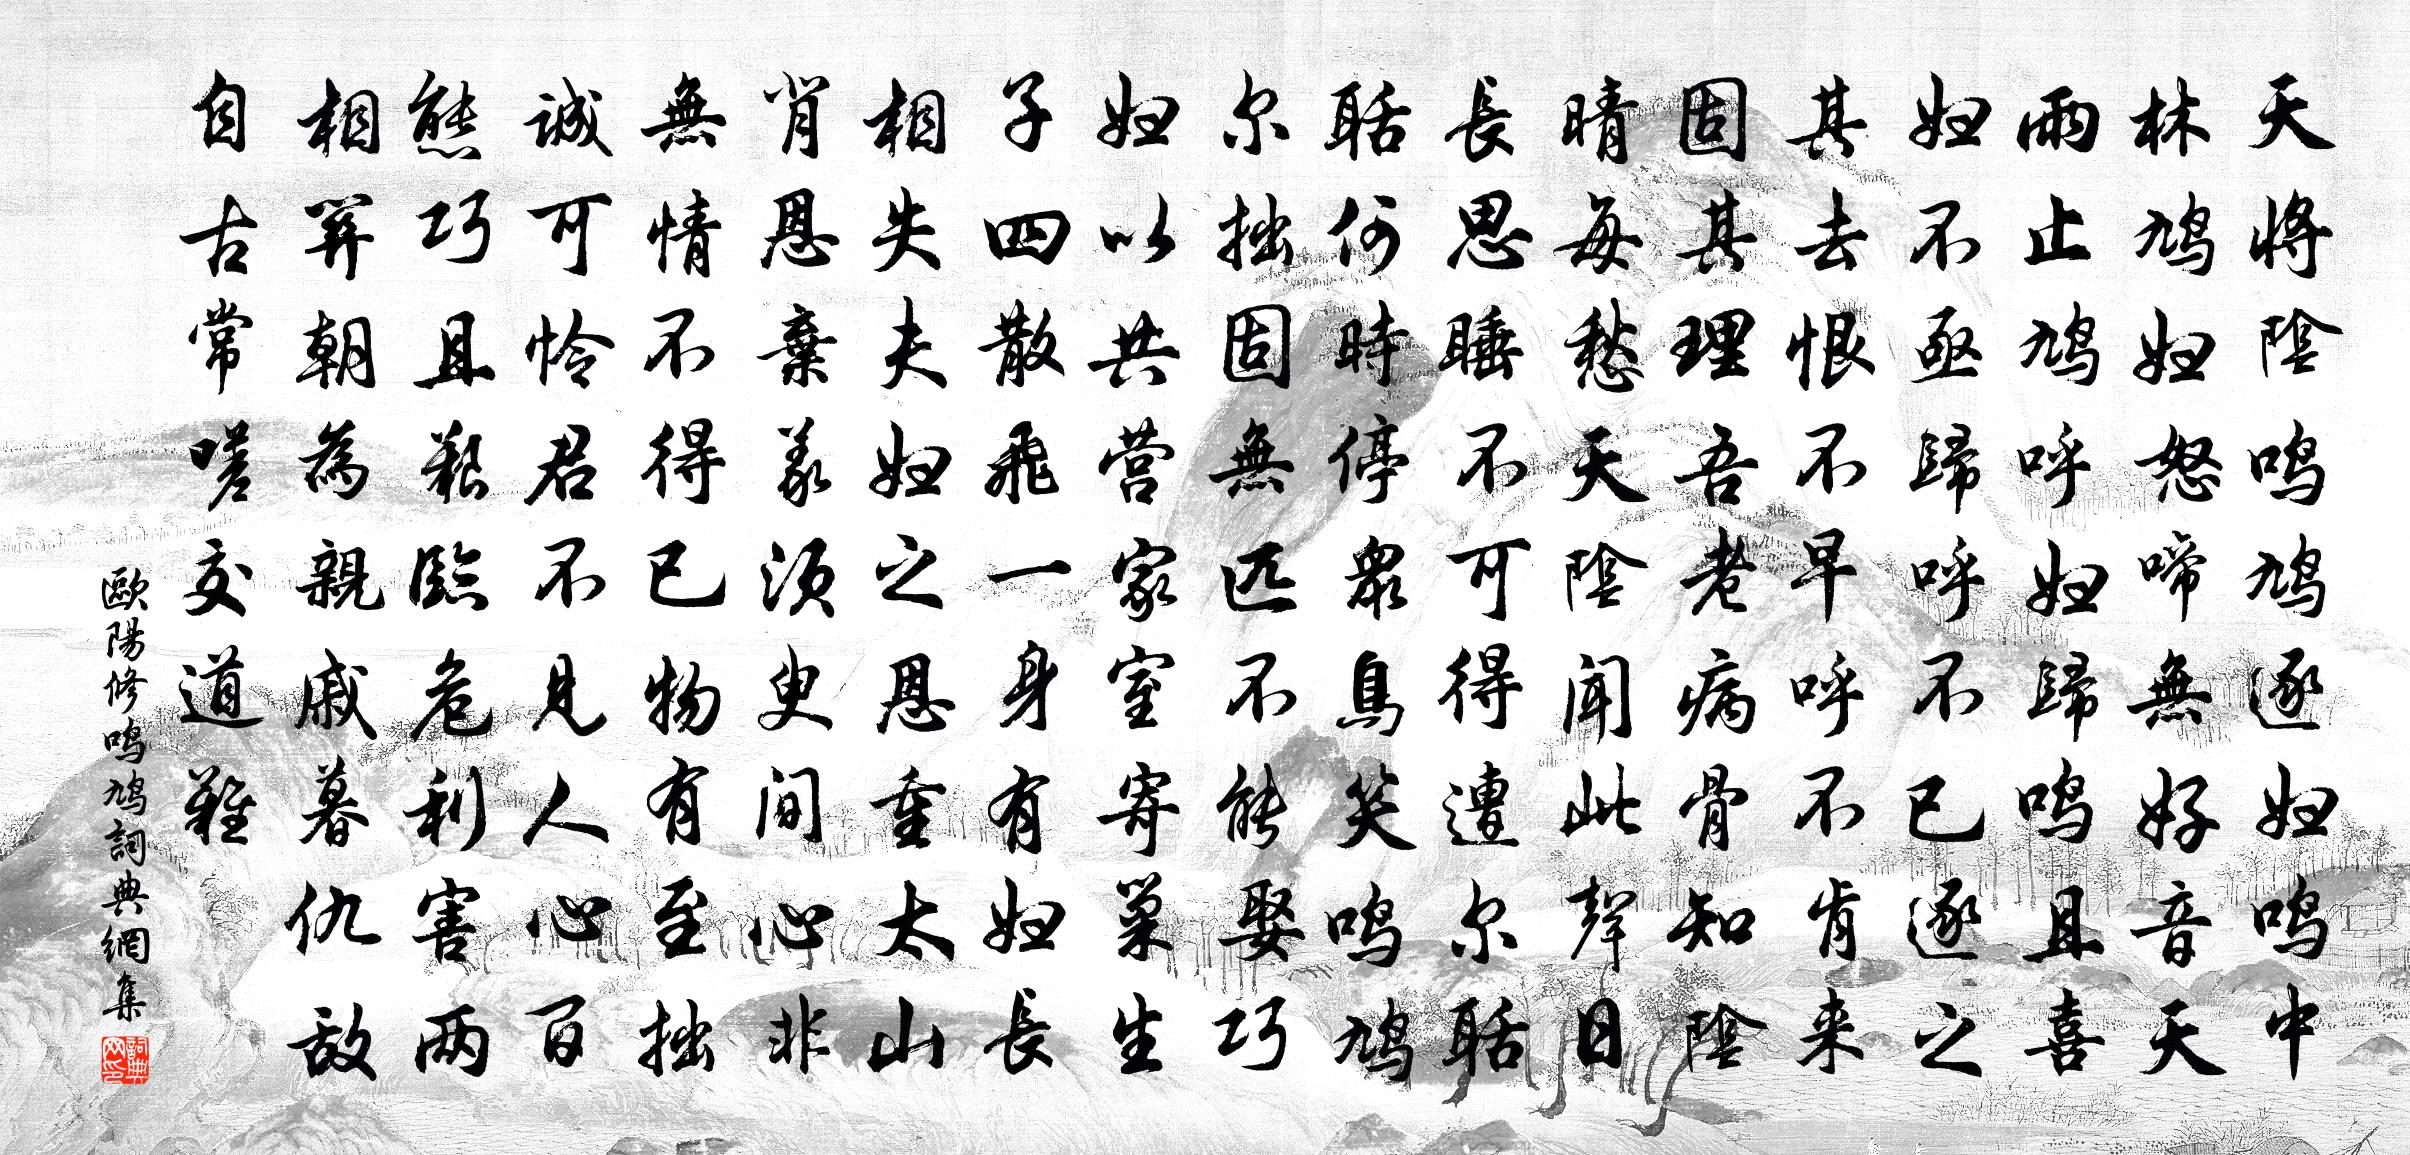 天將陰鳴鳩逐妇鳴中
林鳩妇怒啼無好音天
雨止鳩呼妇歸鳴且喜
妇不亟歸呼不已逐之
其去恨不早呼不肯来
固其理吾老病骨知陰
晴每愁天陰闻此聲日
長思睡不可得遭尔聒
聒何時停眾鳥笑鳴鳩
尔拙固無匹不能娶巧
妇以共营家室寄巢生
子四散飛一身有妇長
相失夫妇之恩重太山
肖恩棄義须臾间心非
無情不得已物有至拙
誠可怜君不見人心百
態巧且艱臨危利害两
相關朝為親戚暮仇敌
自古常嗟交道難
歐陽修鳴鳩詞典網集
詞典网印